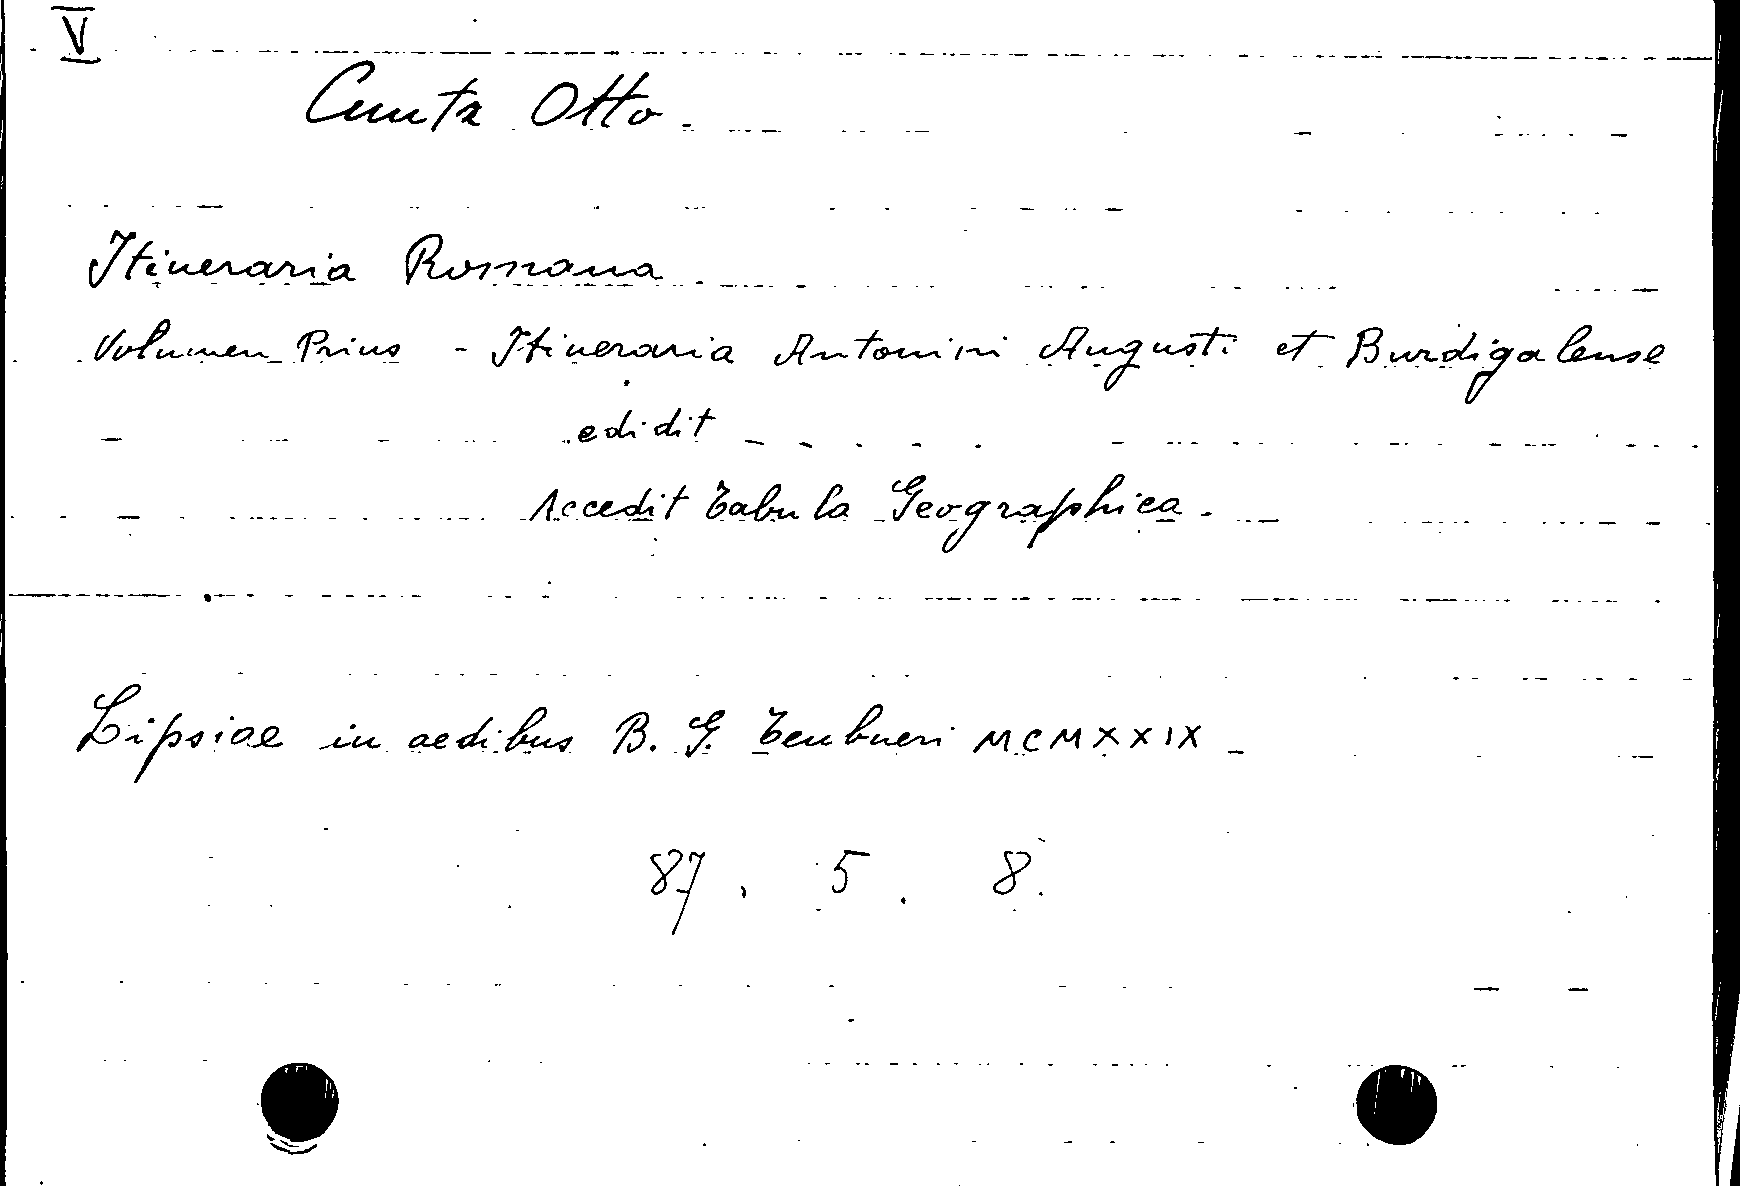 V
Cuntz Otto.
Itineraria Romana
Volumen Prius - Itineraria Antonini Augusti et Burdigalense
edidit
Accedit Tabula Geographica.
Lipsiae in aedibus B. G. Teubneri MCMXXIX
87. 5. 8.